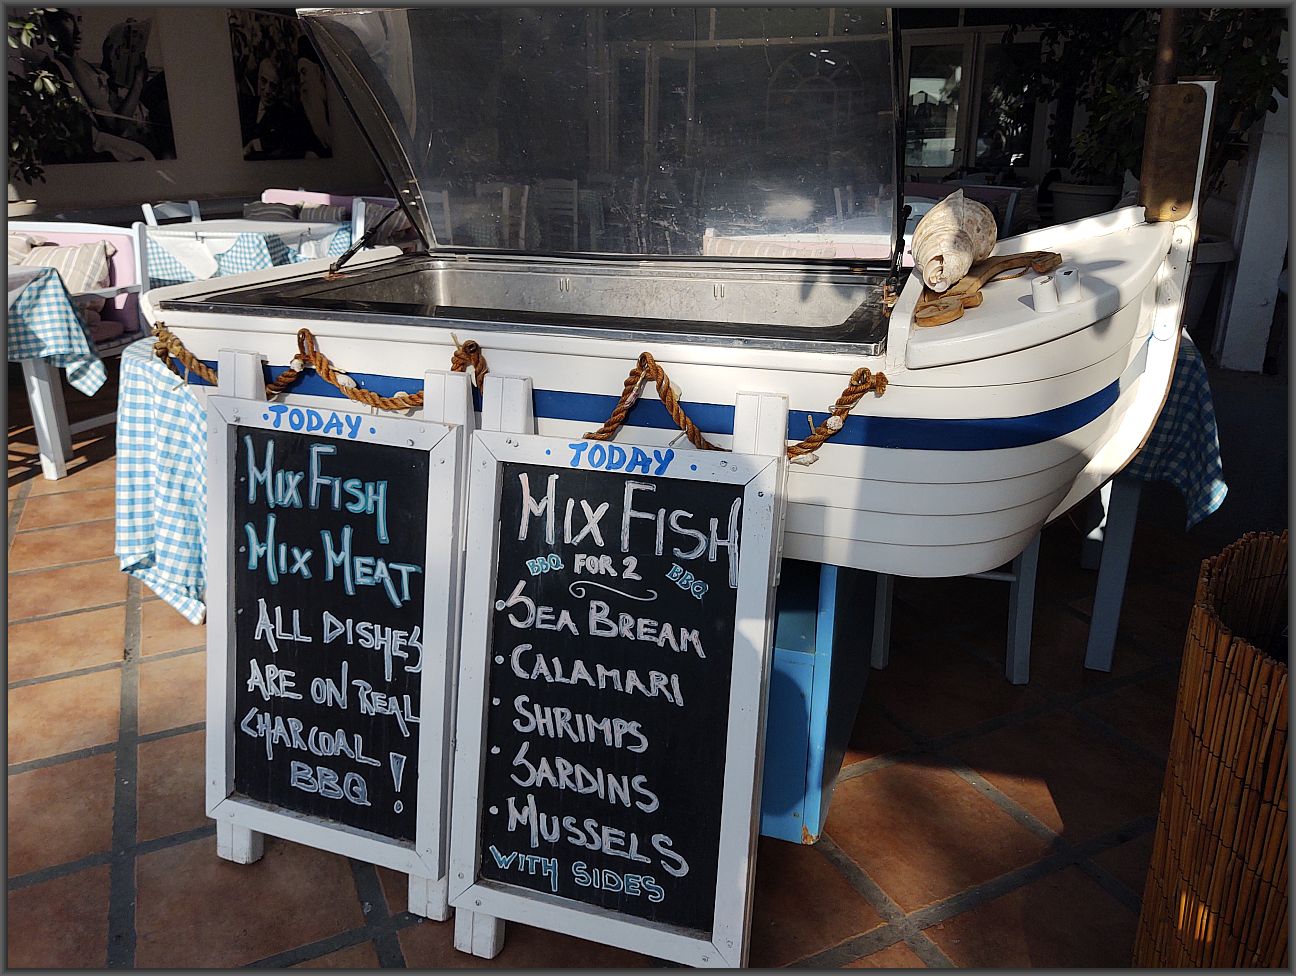 ·TODAY·
MIX FISH
MIX MEAT
ALL DISHES
ARE ON REAL
CHARCOAL
BBQ !
· TODAY ·
MIX FISH
BBQ FOR 2 BBQ
· SEA BREAM
· CALAMARI
· SHRIMPS
· SARDINS
· MUSSELS
WITH SIDES